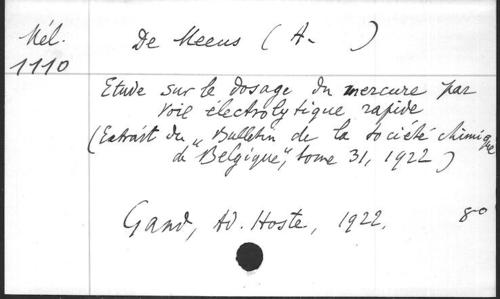 Mél.
1110
De Meeus (A. )
Etude sur le dosage du mercure par
voie électrolytique rapide
(Extrait du "Bulletin de la société chimique
de Belgique", tome 31, 1922)
Gand, Ad. Hoste, 1922. 8o